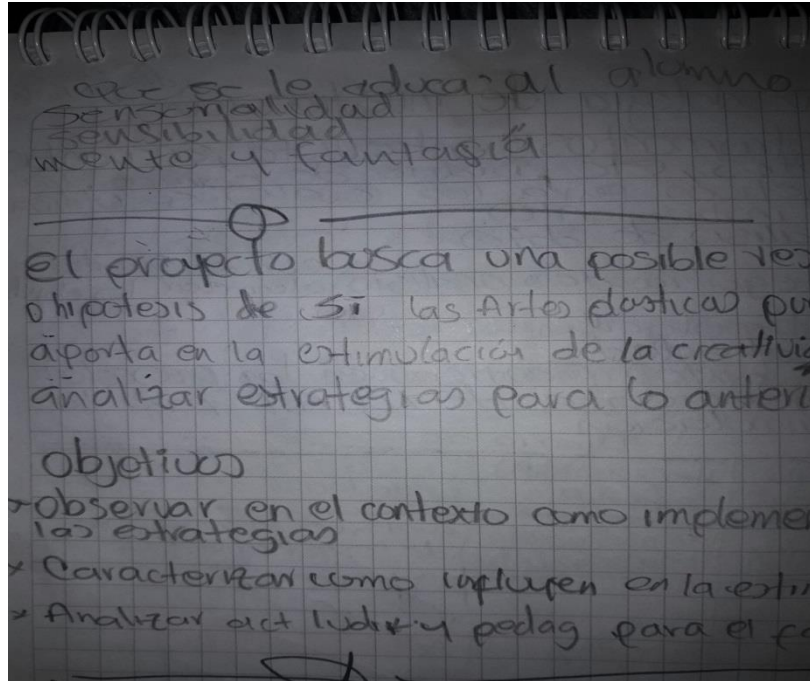 se le educa al alomno
sensorialidad
sensibilidad
mente y fantasia
el proyecto busca una posible res
o hipotesis de si las Artes plasticas pu
aporta en la estimulación de la creativid
analizar estrategias para lo anteri
Objetivos
Observar en el contexto como impleme
las estrategias
Caracterizar como influyen en la esti
Analizar act ludi y pedag para el